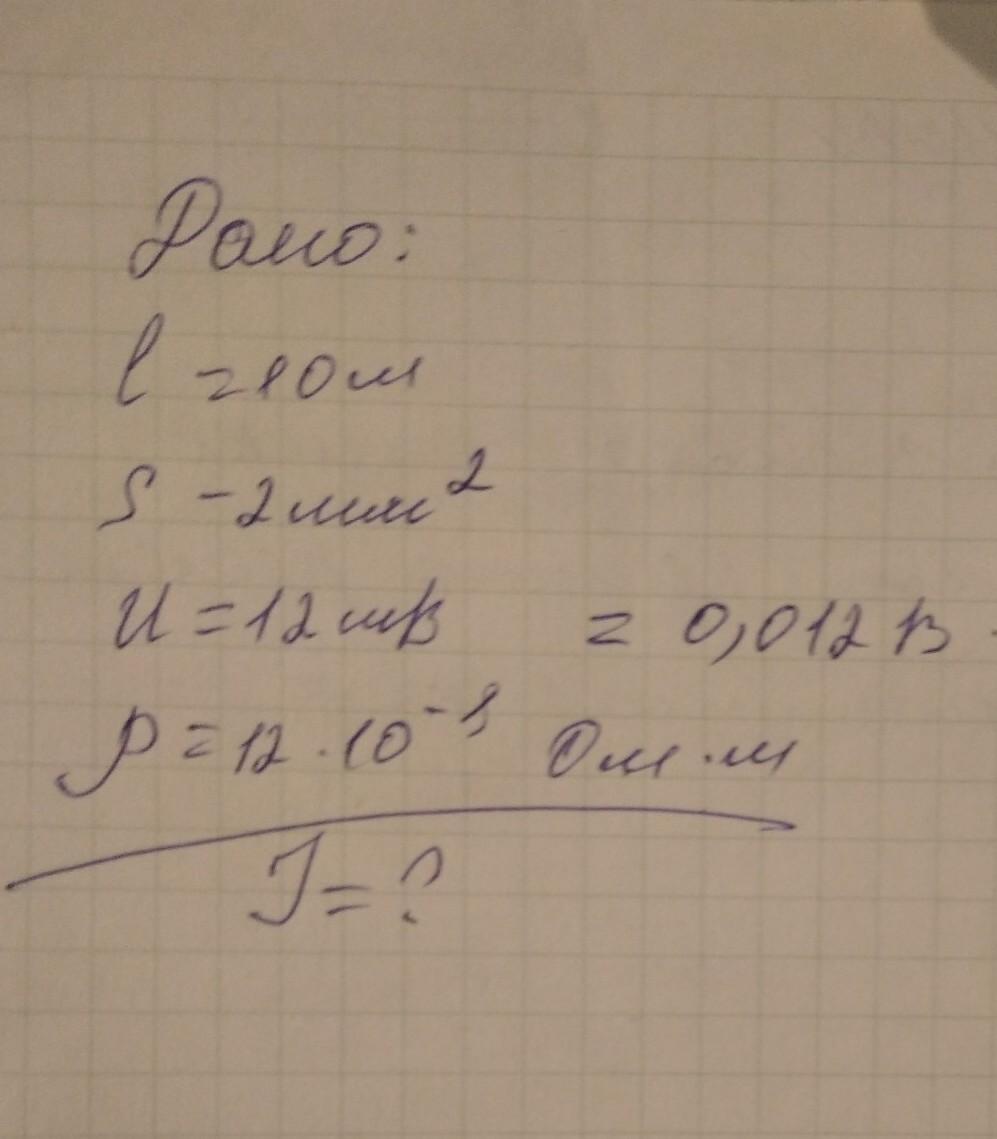 Дано:
l = 10 м
S - 2 мм²
U = 12 мВ = 0,012 В
ρ = 12 · 10⁻⁸ Ом · м
J = ?